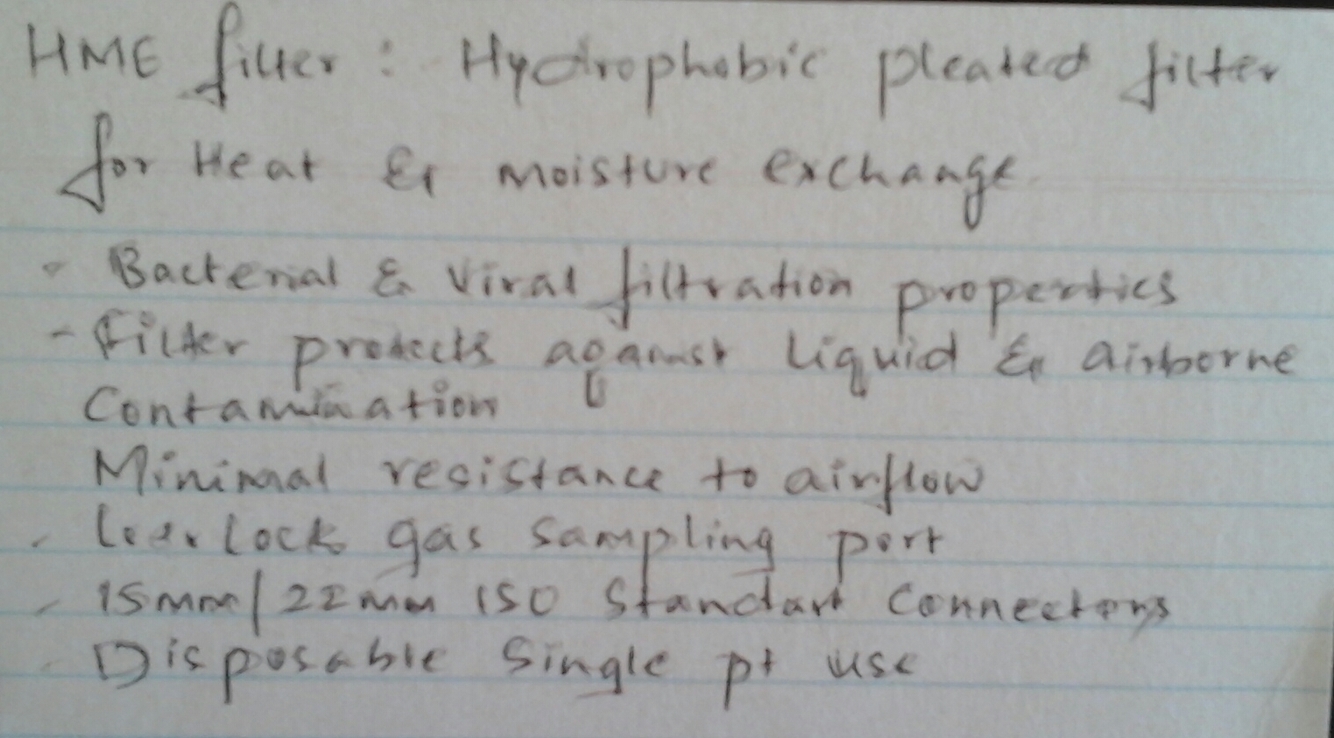 HME filter : Hydrophobic pleated filter
for Heat & moisture exchange.
- Bacterial & Viral filtration properties
- Filter protects against Liquid & airborne
Contamination
Minimal resistance to airflow
- lock gas sampling port
- 15mm/22mm ISO Standart Connectors
- Disposable Single pt use